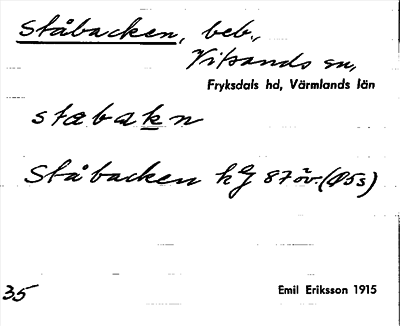 Ståbacken, beb.,
Vitsands sn,
Fryksdals hd, Värmlands län
stæbakn
Ståbacken hg 87 öv. (Ø5s)
35
Emil Eriksson 1915